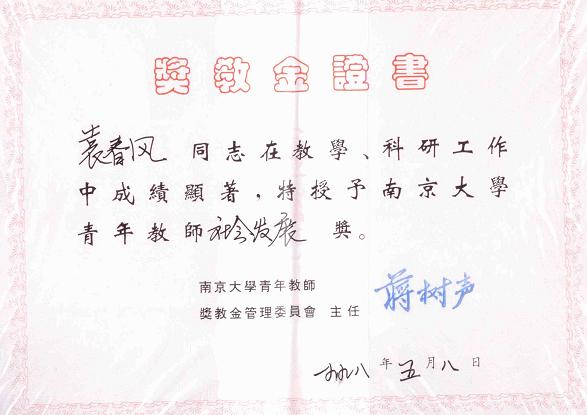 獎教金證書
袁春风 同志在教學、科研工作
中成績顯著，特授予南京大學
青年教師社会发展 獎。
南京大學青年教師
獎教金管理委員會 主任 蒋树声
九九八 年 五 月 八 日